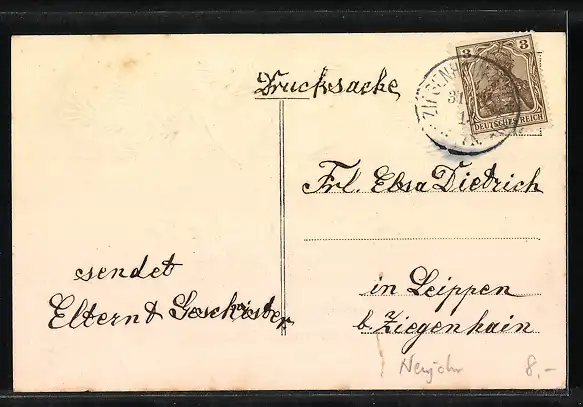 Drucksache
3
DEUTSCHES REICH
31
Frl. Elsa Dietrich
in Leippen
b. Ziegenhain
sendet
Eltern & Geschister
Neujahr 8.-